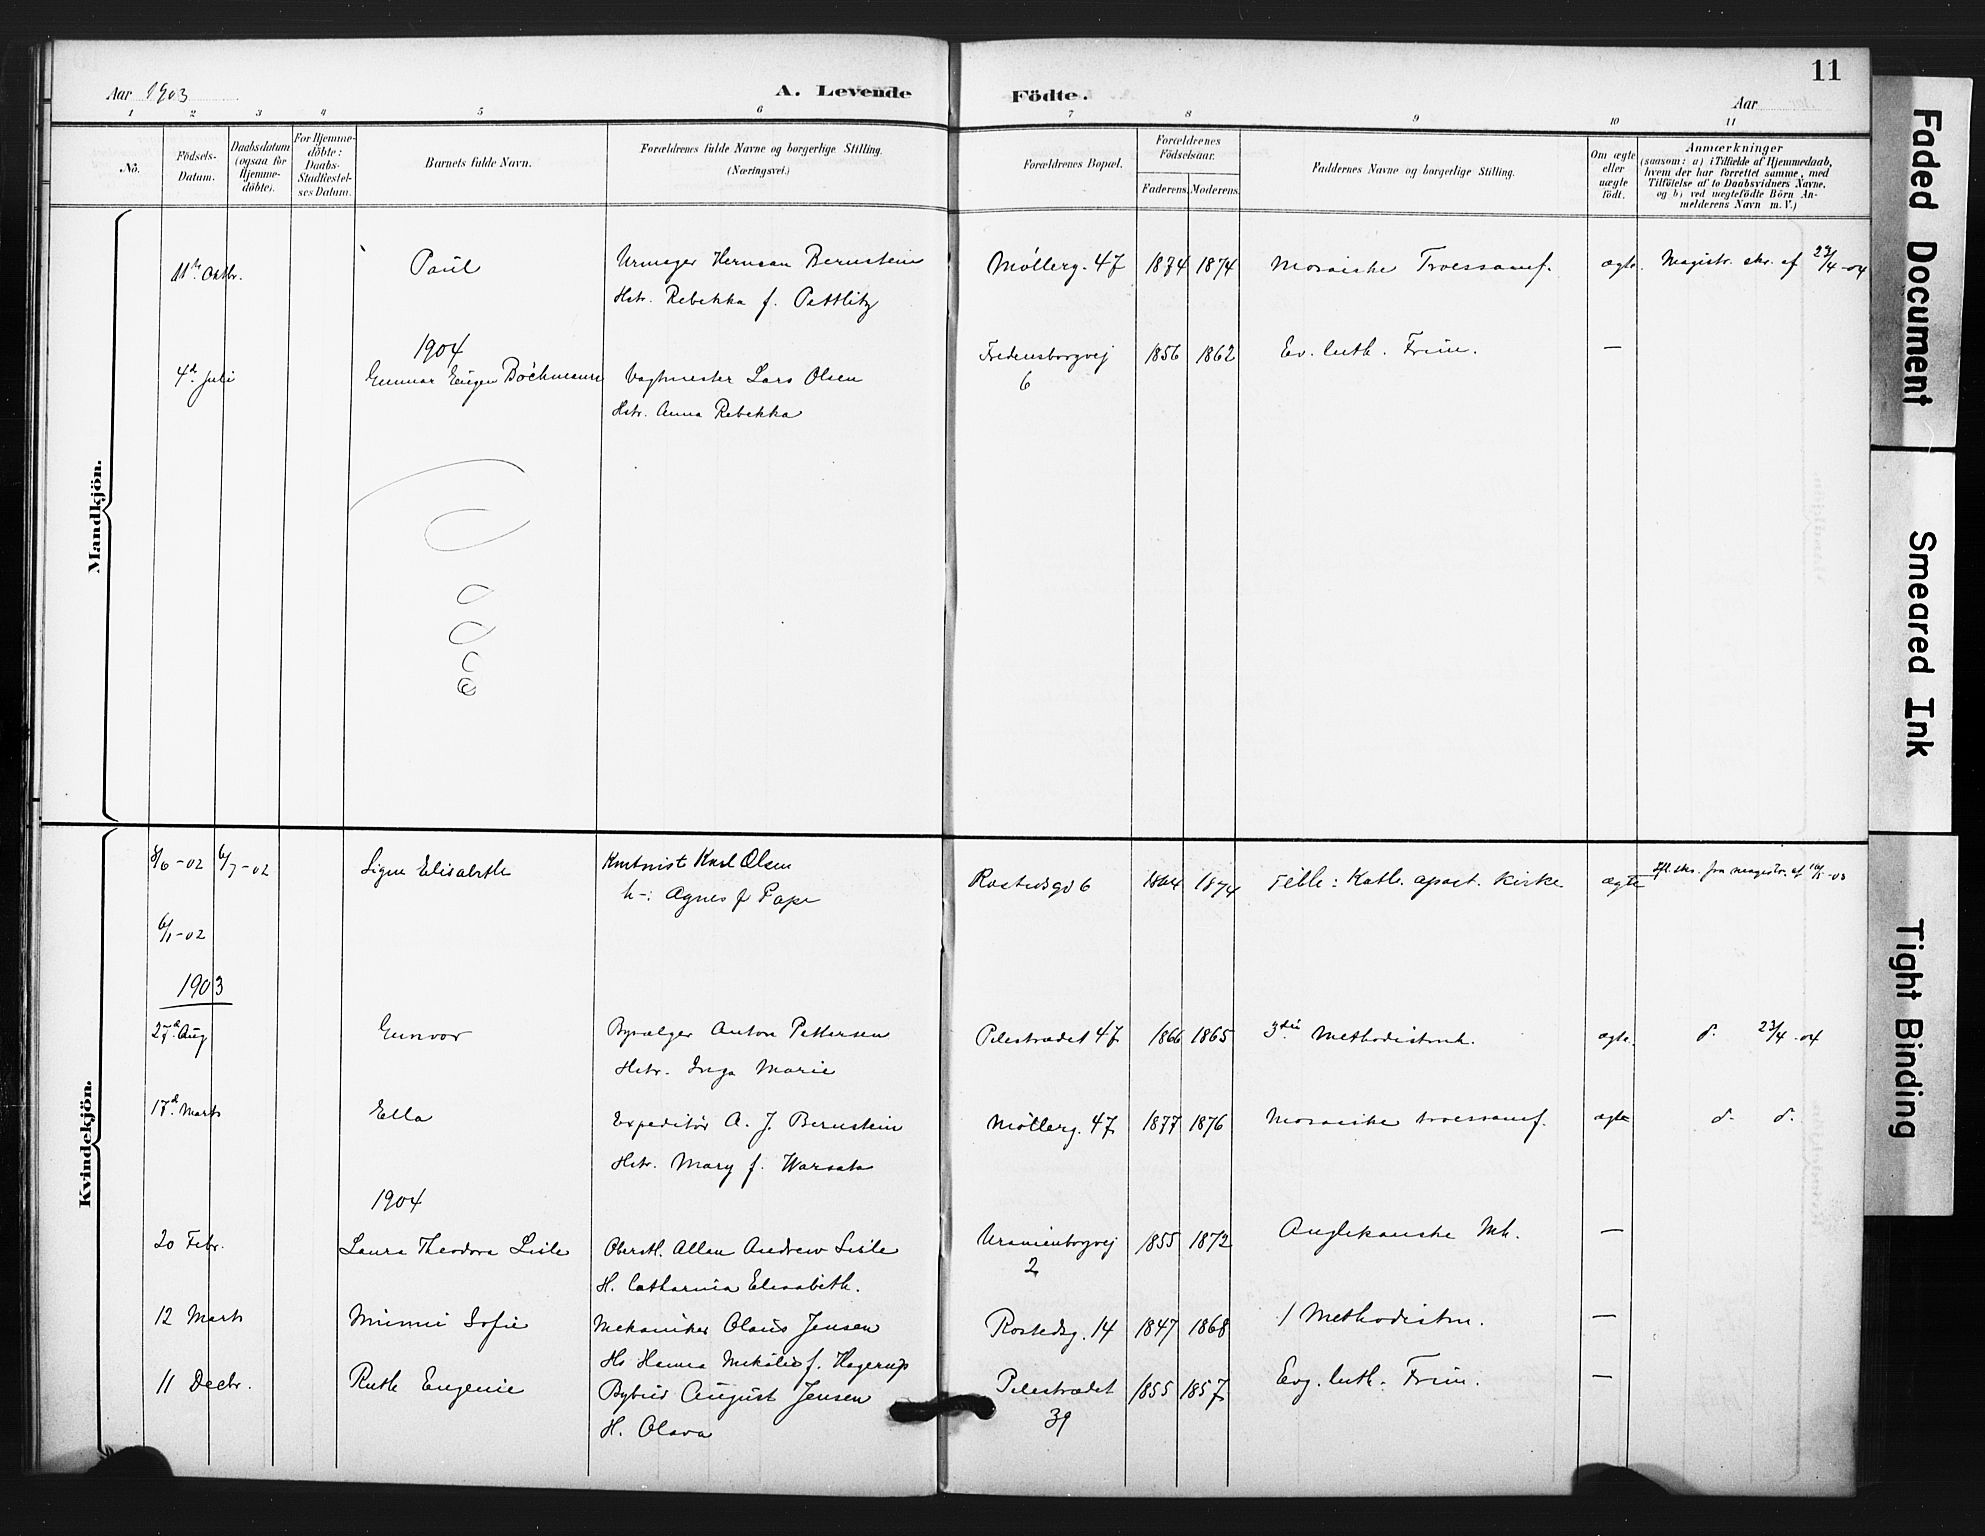 11
Aar 1903
A. Levende
Födte.
Aar
1 2 3 4 5 6 7 8 9 10 11
No.
Födsels-
Datum.
Daabsdatum
(ogsaa for
Hjemme-
döbte).
For Hjemme-
döbte:
Daabs-
Stadfæstel-
ses Datum.
Barnets fulde Navn.
Forældrenes fulde Navne og borgerlige Stilling.
(Næringsvei.)
Forældrenes Bopæl.
Forældrenes
Födselsaar.
Faderens. Moderens.
Faddernes Navne og borgerlige Stilling.
Om ægte
eller
uægte
født.
Anmærkninger
(saasom: a) i Tilfælde af Hjemmedaab,
hvem der har forrettet samme, med
Tilföielse af to Daabsvidners Navne,
og b) ved uægtefödte Börn An-
melderens Navn m. V.)
Mandkjön.
11te Oktbr. Paul Urmager Herman Bernstein Möllerg. 47 1874 1874 Mosaiske Troessamf. ægte. Magistr. skr. af 23/4-04
Hstr. Rebekka f. Pattlitz
1904
4d Juli Gunnar Eugen Böchmann Vagtmester Lars Olsen Fredensborgvej 1856 1862 Ev. luth. Frim. —
6
Hstr. Anna Rebekka
Kvindekjön.
8/6-02 6/7-02 Signe Elisabeth Karl Olsen Rostedsgd 6 1864 1874 Kath. apost. Kirke ægte
h-: Agnes f Pape
6/11-02
1903
27d Aug Gunvor Anton Pettersen Pilestrædet 47 1866 1865 3die Methodistmh. ægte. d. 23/4-04
Hstr. Inga Marie
17d Marts Ella Expeditör A. J. Bernstein Möllerg. 47 1877 1876 Mosaiske troessamf. ægte d. d.
Hstr. Mary f. Warsata
1904
20 Febr. Laura Theodora Lisle Oberstl. Allan Andrew Lisle Uranienborgvej 1855 1872 Anglikanske Mh. —
2
H. Catharina Elisabeth.
12 Marts Minni Sofie Mekaniker Olaus Jensen Rostedsg. 14 1847 1868 1 Methodistm. —
Hs Hanna f. Hagerup
11 Decbr. Ruth Eugenie Bybud August Jensen Pilestrædet 1855 1857 Evg. luth. Frim. —
39
H. Olava
Faded Document
Smeared Ink
Tight Binding